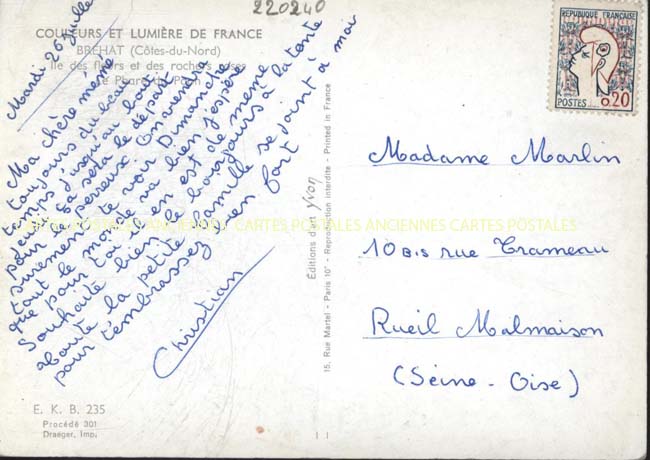 220240
COULEURS ET LUMIÈRE DE FRANCE
BRÉHAT (Côtes-du-Nord)
Ile des fleurs et des rochers roses
Le Phare du
Mardi 26 Juillet
Ma chère mémé
toujours du beau
temps jusqu'au bout
jeudi ça sera le départ
pour perreux. On viendra
surement te voir Dimanche
tout le monde va bien j'espère
que pour toi il en est de meme
Souhaite bien le bonjours à la tante
aboute la petite famille se joint à moi
pour t'embrassez bien fort
Christian
E. K. B. 235
Procédé 301
Draeger, Imp.
Editions d'art yvon
15, Rue Martel - Paris 10e - Reproduction interdite - Printed in France
REPUBLIQUE FRANÇAISE
POSTES
0,20
Madame Marlin
10 Bis rue Trameau
Rueil Malmaison
(Seine-Oise)
CARTES POSTALES ANCIENNES CARTES POSTALES